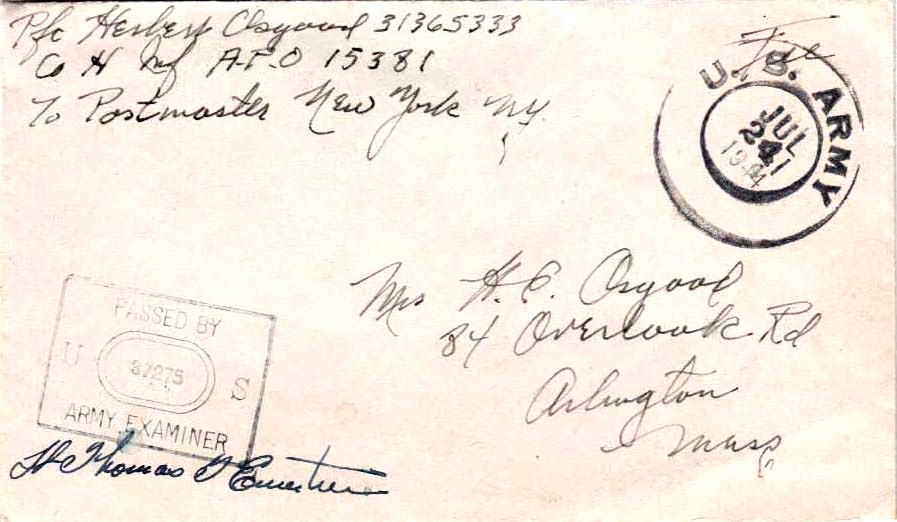 Pfc Herbert Osgood 31365333
Co H Inf A.P.O 15381
To Postmaster New York N.Y.
Free
U. S. ARMY
JUL
24
1944
Mrs H. E. Osgood
84 Overlook Rd
Arlington
Mass
PASSED BY
U 37275 S
ARMY EXAMINER
Lt Thomas